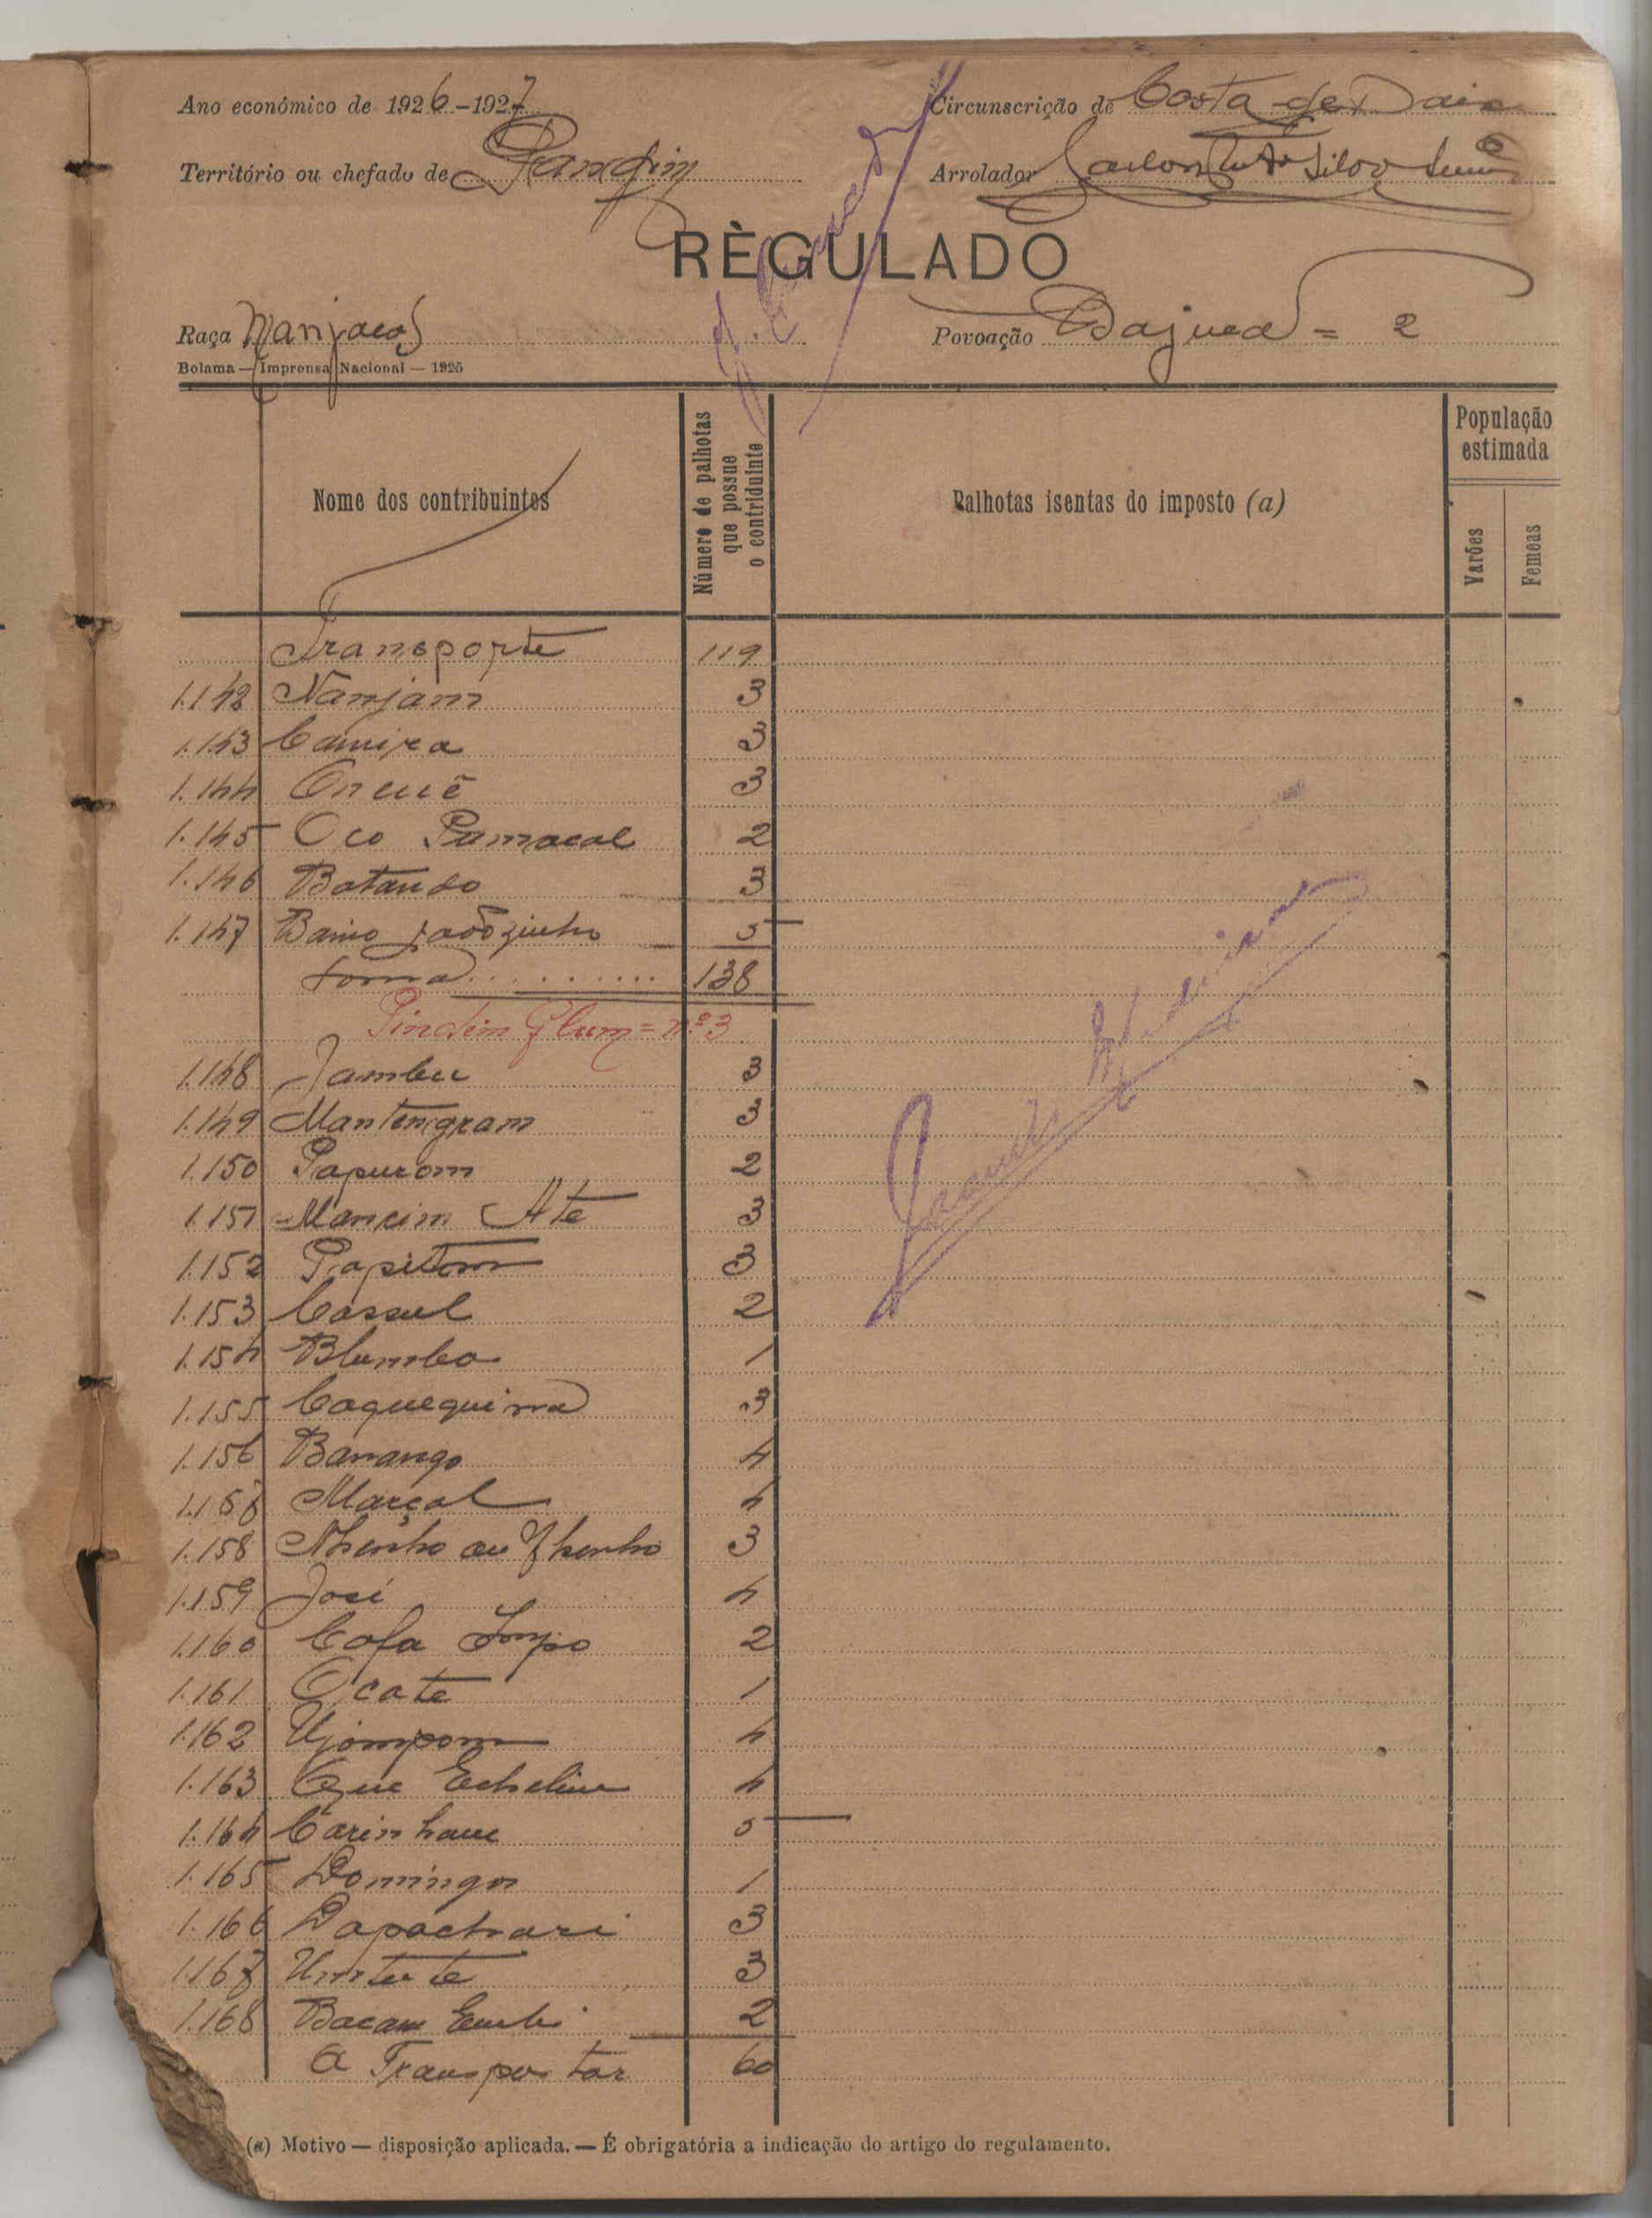 Ano económico de 1926-1927
Circunscrição de Costa de Baixo
Território ou chefado de Pandim
Arrolador Carlos Silva
RÈGULADO
Raça Manjacos
Povoação Bajuca = 2
Bolama — Imprensa Nacional — 1925
Nome dos contribuintes
Número de palhotas que possue o contriduinte
Palhotas isentas do imposto (a)
População estimada
Varões
Femeas
Transporte 119
1.142 Nanjam 3
1.143 Camira 3
1.144 Oncuê 3
1.145 Oco Pamacal 2
1.146 Batando 3
1.147 Baino Joãozinho 5
Soma 138
Pindim = nº 3
1.148 Jambu 3
1.149 Mantengram 3
1.150 Papurom 2
1.151 Mancim Ate 3
1.152 Papitom 3
1.153 Cassul 2
1.154 Blumbo 1
1.155 Caquequima 3
1.156 Banango 4
1.157 Marçal 4
1.158 Nhenho ou 3
1.159 José 4
1.160 Cafa Impo 2
1.161 Ocate 1
1.162 Ujompom 4
1.163 Que 4
1.164 Carinhaue 5
1.165 Domingos 1
1.166 Dapachari 3
1.167 Untute 3
1.168 Bacam 2
A Transportar 60
(a) Motivo — disposição aplicada. — É obrigatória a indicação do artigo do regulamento.